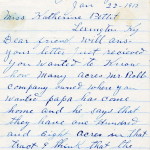 Jan 22-1918
Miss Katherine Pettit
Lexington Ky
Dear friend will ans
your letter just recived
you wanted to Know
how Many acres Mr Roll
Company owned where you
wanted papa has come
home and he says that
they have one hundred
and Eight acres in that
tract I think that the